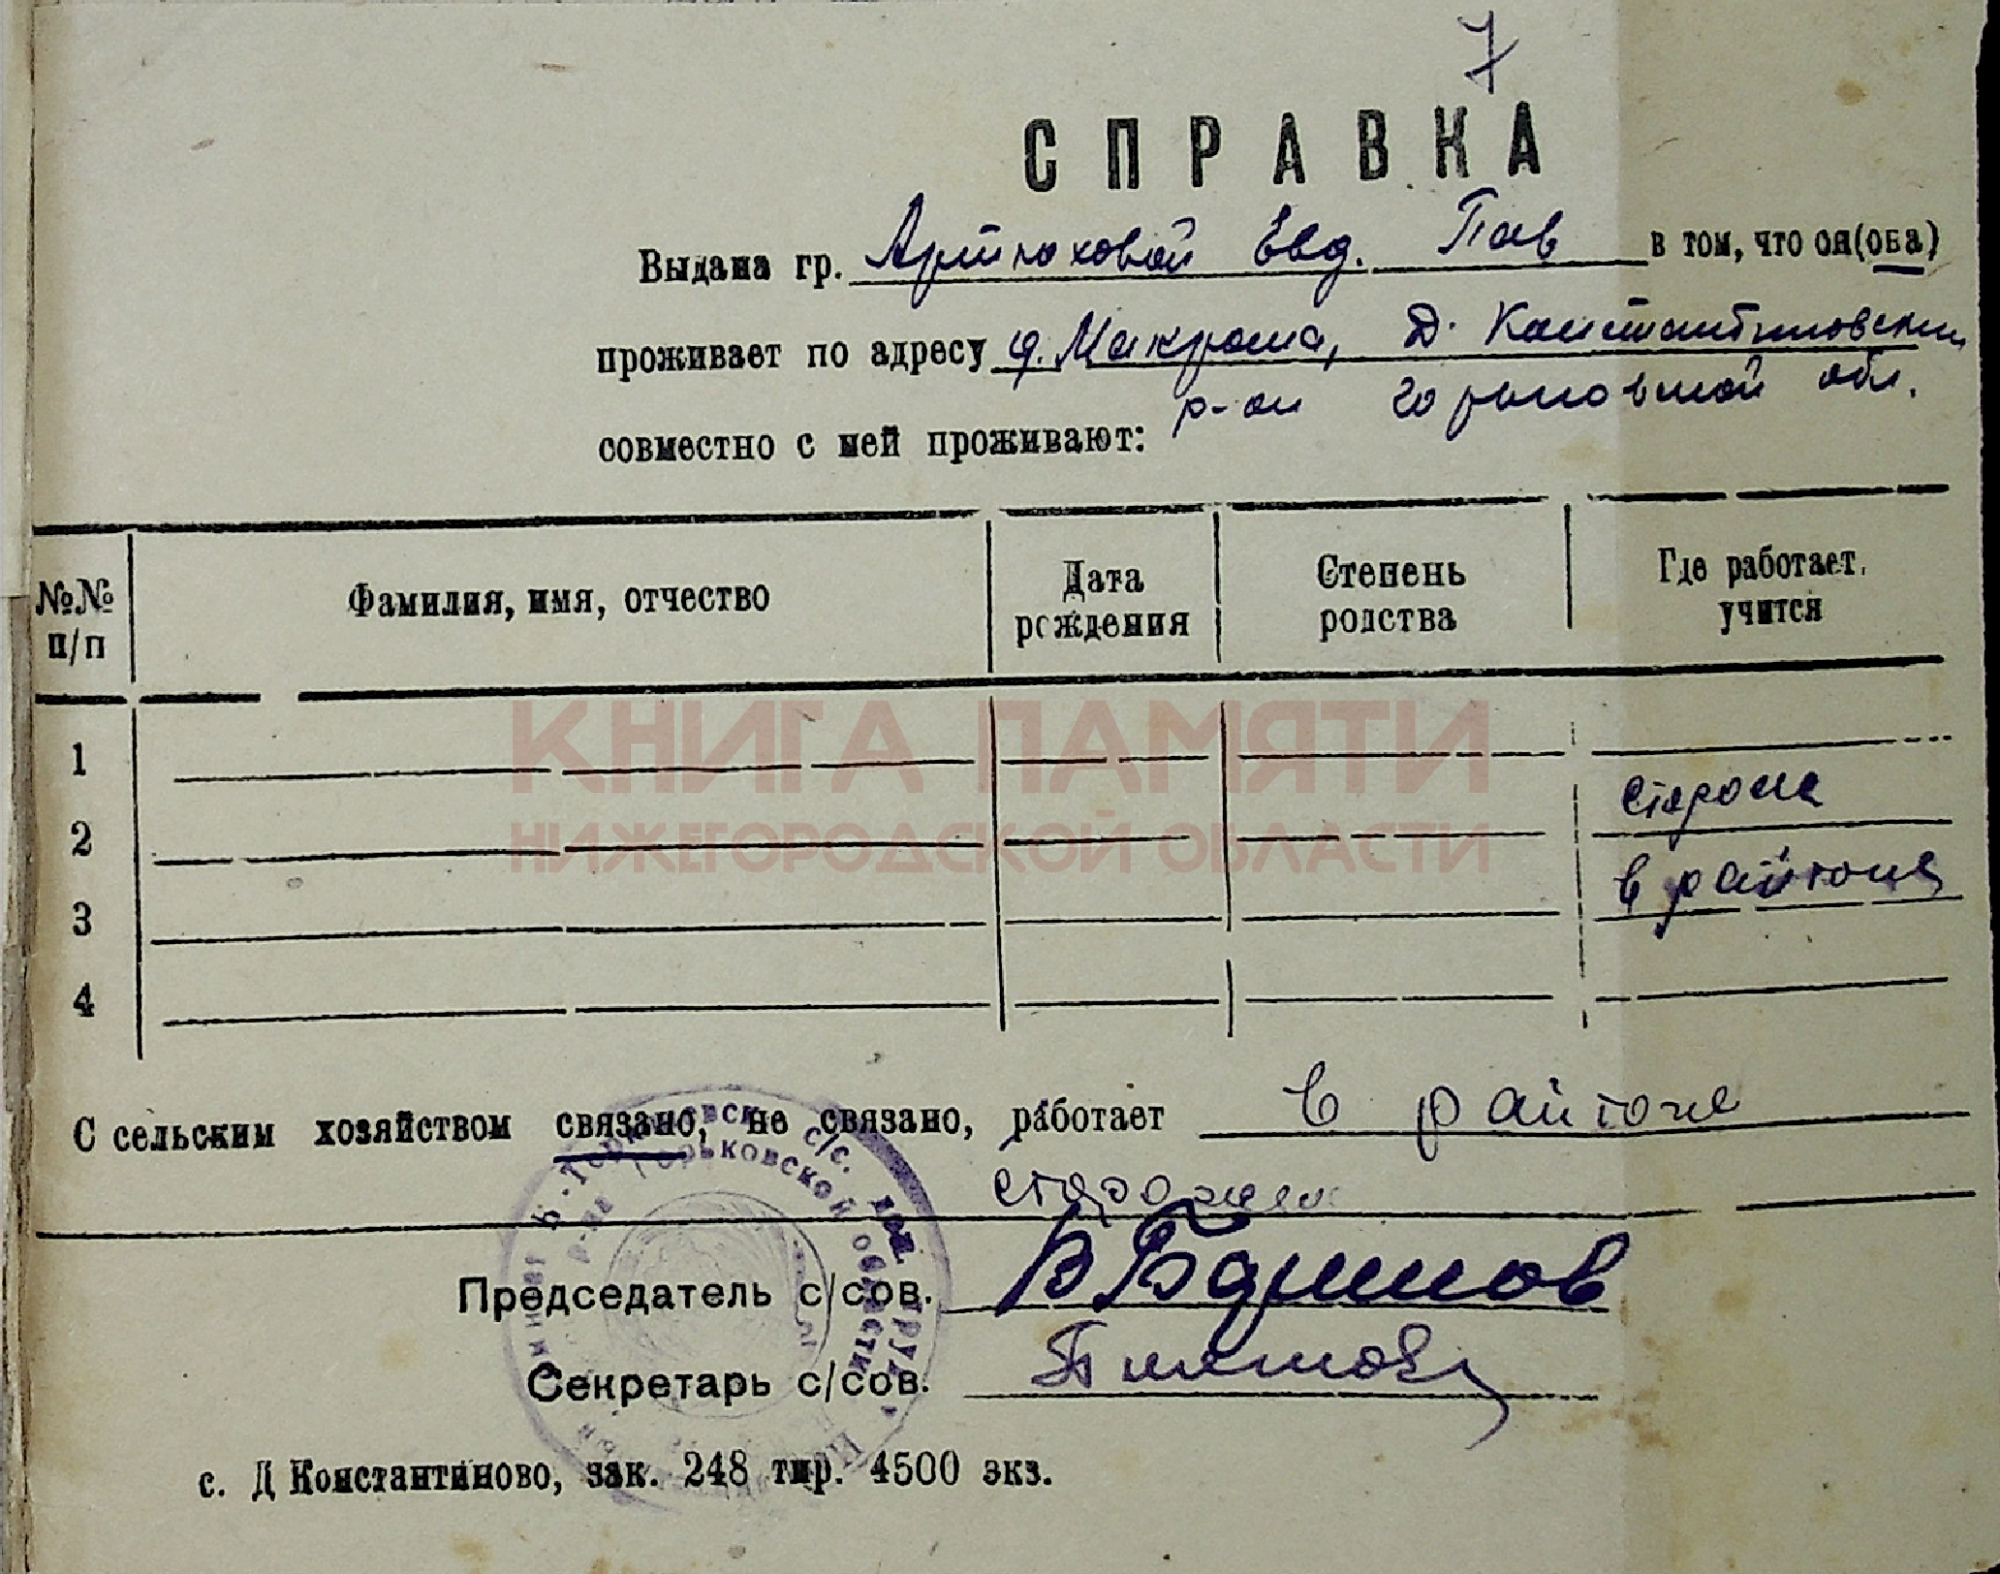 7
СПРАВКА
Выдана гр. Артюховой Евд. Пав в том, что он(она)
проживает по адресу д. Макраша, Д. Константиновский
р-он Горьковской обл.
совместно с ней проживают:
№№ п/п Фамилия, имя, отчество Дата рождения Степень родства Где работает, учится
1
КНИГА ПАМЯТИ
сторож
2
НИЖЕГОРОДСКОЙ ОБЛАСТИ
в районе
3
4
С сельским хозяйством связано, не связано, работает в районе
сторожем
с/с.
р-на Горьковской области
Председатель с/сов.
Секретарь с/сов.
с. Д Константиново, зак. 248 тир. 4500 экз.